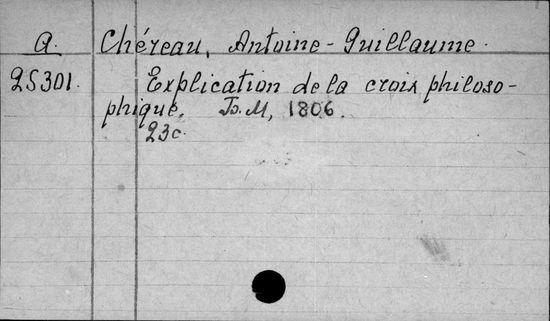 A. Chéreau, Antoine-Guillaume.
25301. Explication de la croix philoso-
phique. 1806.
23c.